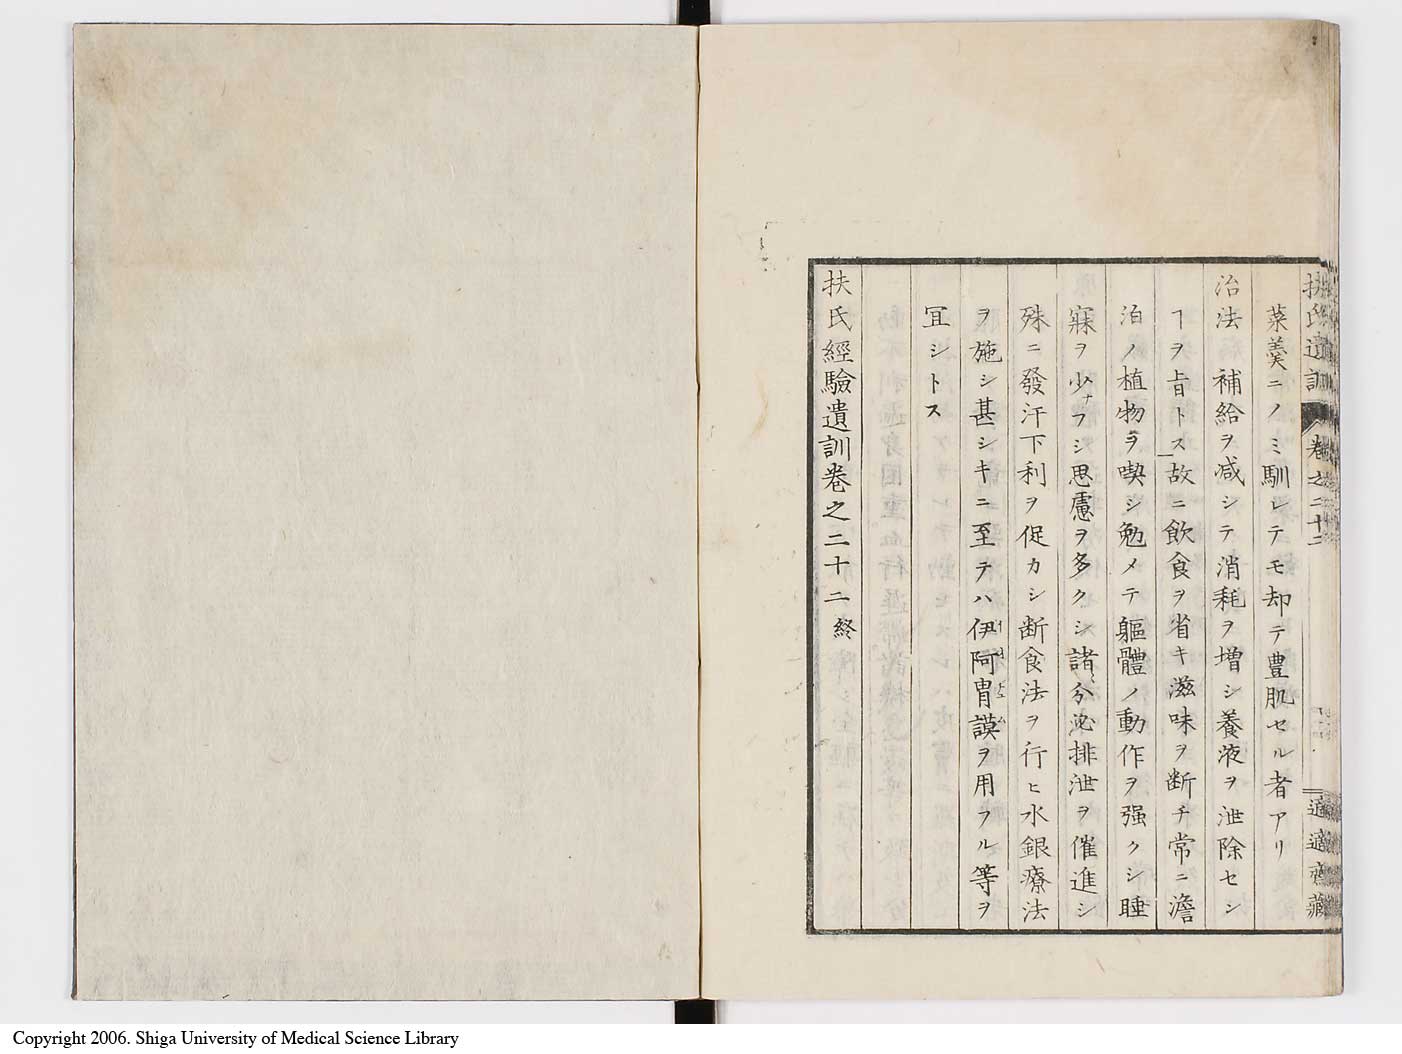 扶氏遺訓 卷之二十二 適適齋藏
菜羹ニノミ馴レテモ却テ豊肌セル者アリ
治法 補給ヲ减シテ消耗ヲ増シ養液ヲ泄除セシ
ヿヲ旨トス故ニ飲食ヲ省キ滋味ヲ断チ常ニ澹
泊ノ植物ヲ喫シ勉メテ軀體ノ動作ヲ强クシ睡
寐ヲ少ナフシ思慮ヲ多クシ諸分泌排泄ヲ催進シ
殊ニ發汗下利ヲ促カシ断食法ヲ行ヒ水銀療法
ヲ施シ甚シキニ至テハ伊阿胄謨ヲ用フル等ヲ
冝シトス
扶氏經驗遺訓卷之二十二終
Copyright 2006. Shiga University of Medical Science Library